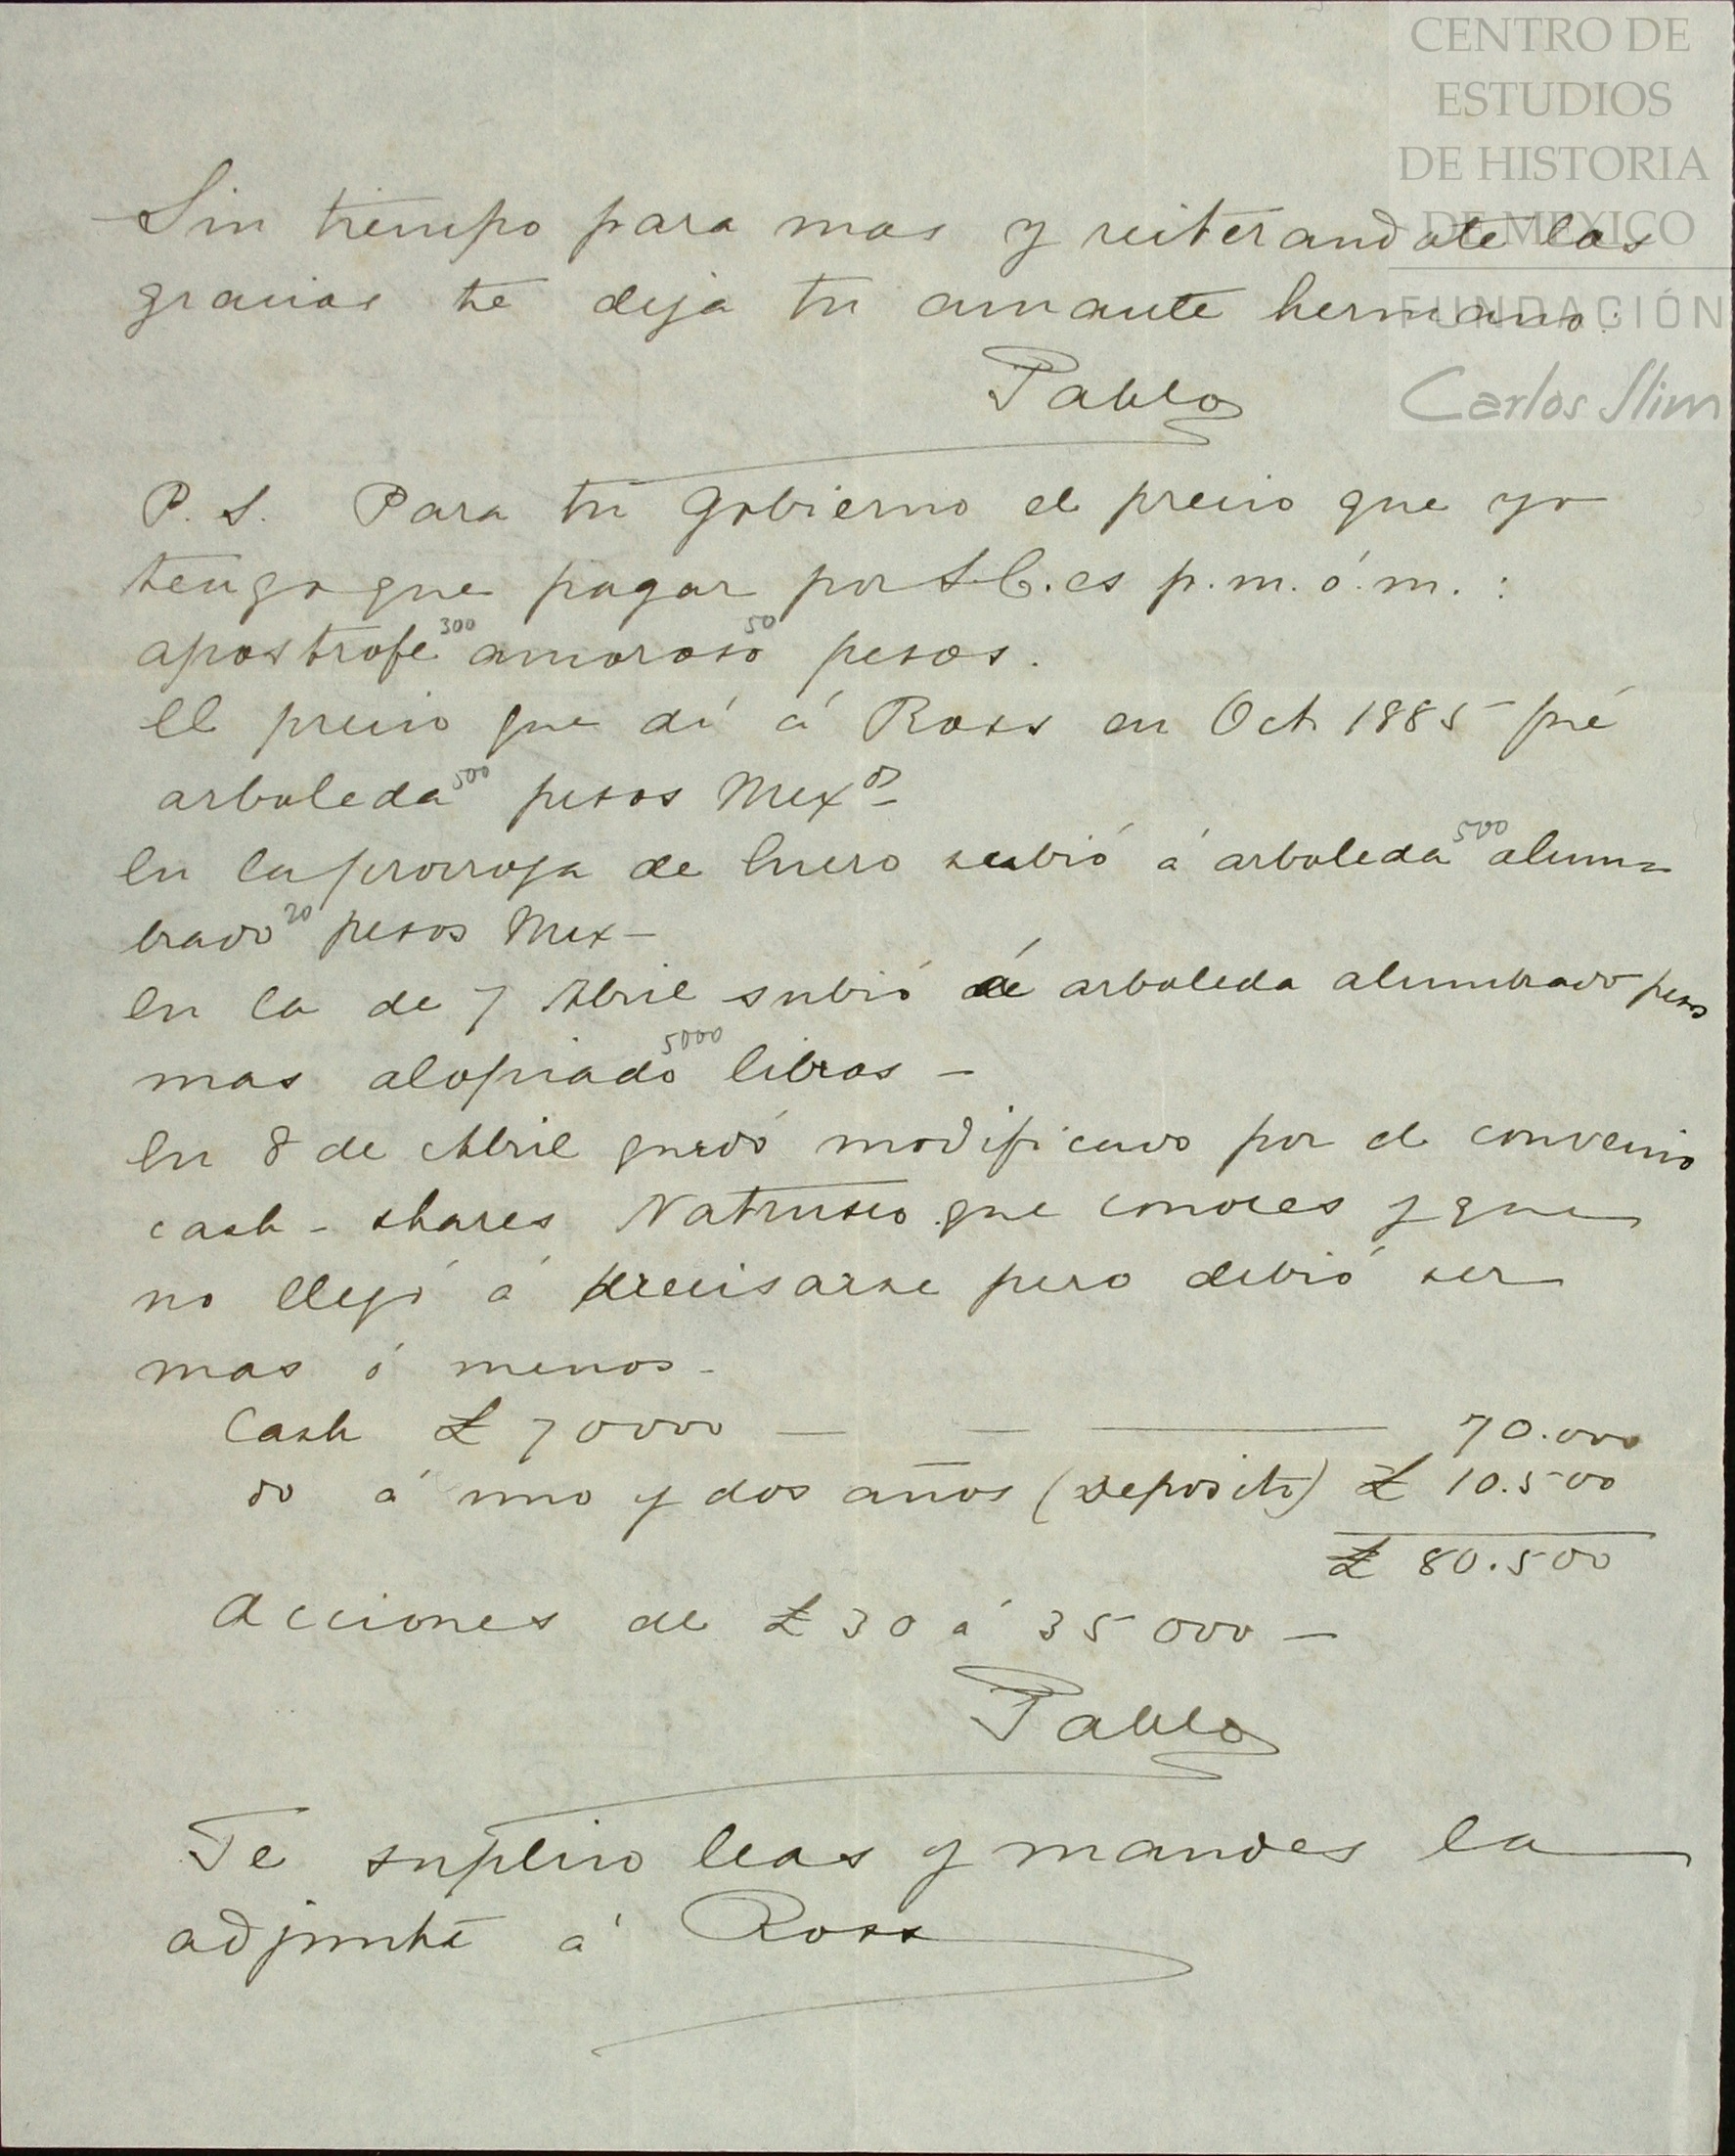 CENTRO DE
ESTUDIOS
DE HISTORIA
DE MEXICO
FUNDACIÓN
Carlos Slim
Sin tiempo para mas y reiterandote las
gracias te deja tu amante hermano.
Pablo
P. S. Para tu gobierno el precio que yo
tengo que pagar por S. C. es p. m. ó. m. :
apostrofe 300 amoroso 50 pesos.
El precio que dí á Ross en Oct 1885 fué
arboleda 500 pesos Mexos
En la prorroga de Enero subió á arboleda 500 alum-
brado 20 pesos Mex-
En la de 7 Abril subió á arboleda alumbrado pesos
mas alopiado 5000 libras -
En 8 de Abril quedó modificado por el convenio
cash - shares Natrusco que conoces y que
no llegó á precisarse pero debió ser
mas ó menos -
Cash £ 70000 — — — 70.000
do á uno y dos años (Deposito) £ 10.500
£ 80.500
Acciones de £ 30 á 35000 -
Pablo
Te suplico leas y mandes la
adjunta á Ross